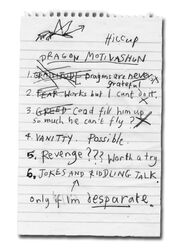 Hiccup
DRAGON MOTIVASHUN
1. GRATITUDE Dragons are never
grateful
2. FEAR Works but I cant do it.
3. GREED Coud fill him up
so much he can't fly
4. VANITTY. Possible.
5. Revenge??? Worth a try
6. JOKES AND RIDDLING TALK.
only if I'm desparate.